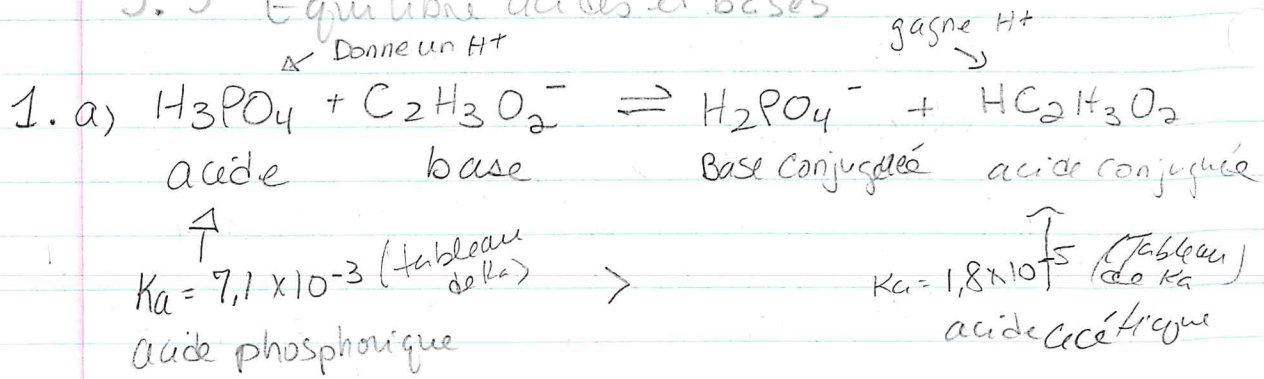 3.3 Equilibre acides et bases
Donne un H+ gagne H+
1. a) H3PO4 + C2H3O2⁻ ⇌ H2PO4⁻ + HC2H3O2
acide base Base conjuguée acide conjuguée
Ka = 7,1 x 10⁻³ (tableau de Ka) > Ka = 1,8x10⁻⁵ (Tableau de Ka)
acide phosphorique acide acétique